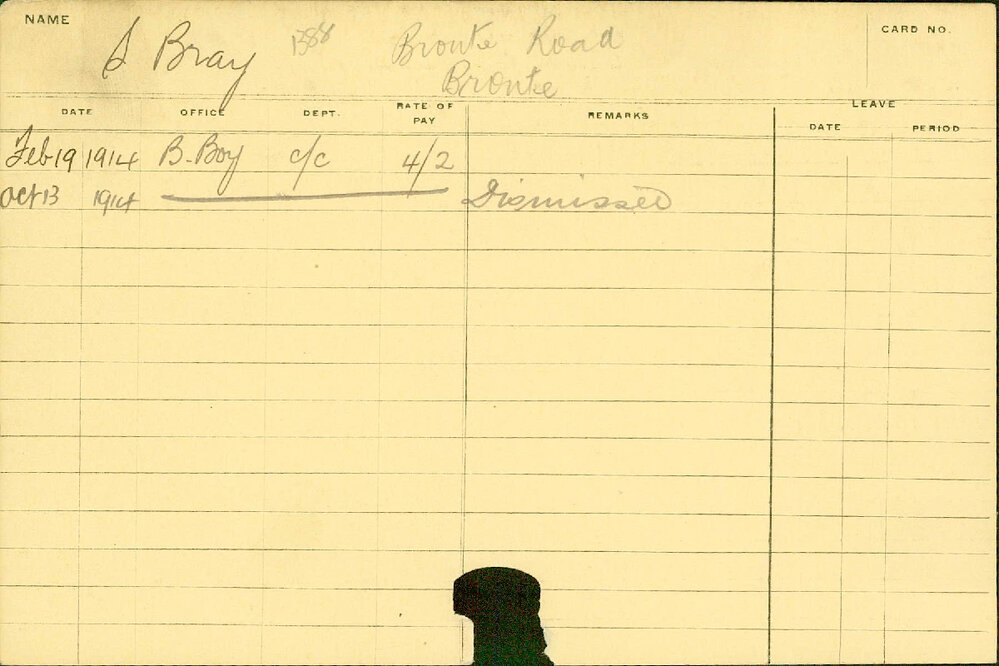 NAME S Bray 1388 Bronte Road CARD NO.
Bronte
DATE OFFICE DEPT. RATE OF PAY REMARKS LEAVE
DATE PERIOD
Feb 19 1914 B. Boy c/c 4/2
Oct 13 1914 Dismissed